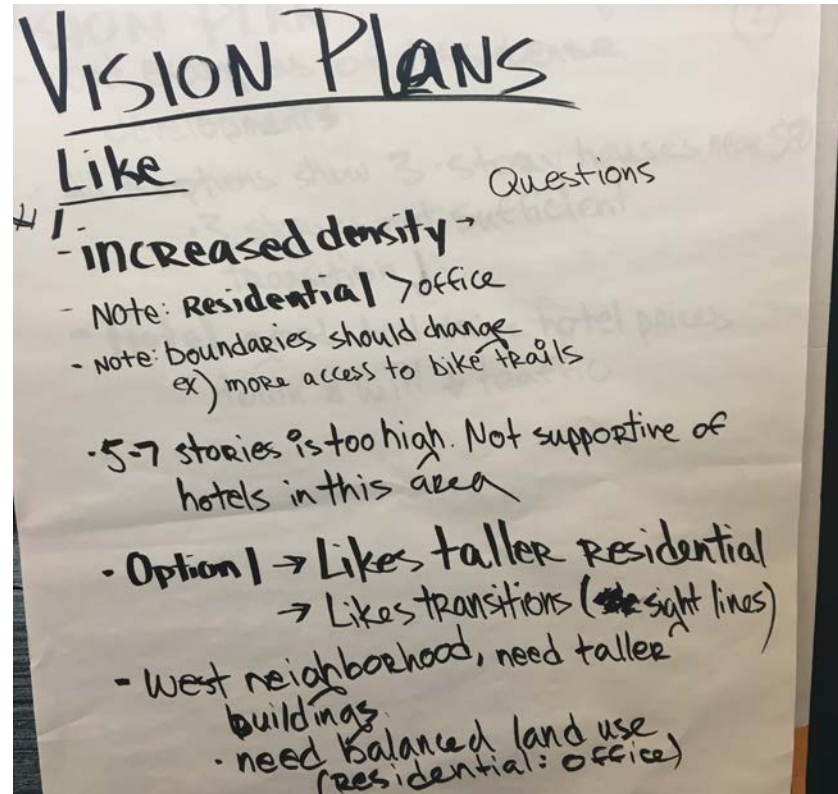 VISION PLANS
Like
Questions
#1
- increased density -
- Note: Residential > office
- Note: boundaries should change
ex) more access to bike trails
· 5-7 stories is too high. Not supportive of
hotels in this area
· Option 1 → Likes taller residential
→ Likes transitions (sight lines)
- west neighborhood, need taller
buildings.
· need balanced land use
(residential : office)